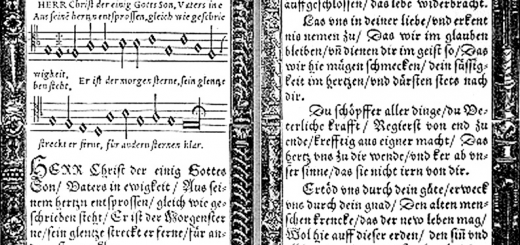 HERR Christ der einig Gotts Son, Vaters in e
Aus seinē hertzn entsprossen, gleich wie geschrie
wigkeit,
ben stehet,
Er ist der morgen sterne, sein glentze
streckt er ferne, für andern sternen klar.
HERR Christ der einig Gottes
Son/ Vaters in ewigkeit/ Aus sei-
nem hertzn entsprossen/ gleich wie ge-
schrieben steht/ Er ist der Morgenster
ne/ sein glentz streckt er ferne/ für an-
auffgeschlossen/ das lebē widderbracht.
Las vns in deiner liebe/ vnd erkent
nis nemen zu/ Das wir im glauben
bleiben/ vñ dienen dir im geist so/ Das
wir hie mügen schmecken/ dein süssig-
keit im hertzen/ vnd dürsten stets nach
dir.
Du schöpffer aller dinge/ du Ve-
terliche krafft/ Regierst von end zu
ende/ krefftig aus eigner macht/ Das
hertz vns zu dir wende/ vnd ker ab vn-
ser sinne/ das sie nicht irrn von dir.
Ertöd vns durch dein güte/ erweck
vns durch dein gnad/ Den alten men-
schen krencke/ das der new leben mag/
Wol hie auff dieser erden/ den sin vnd